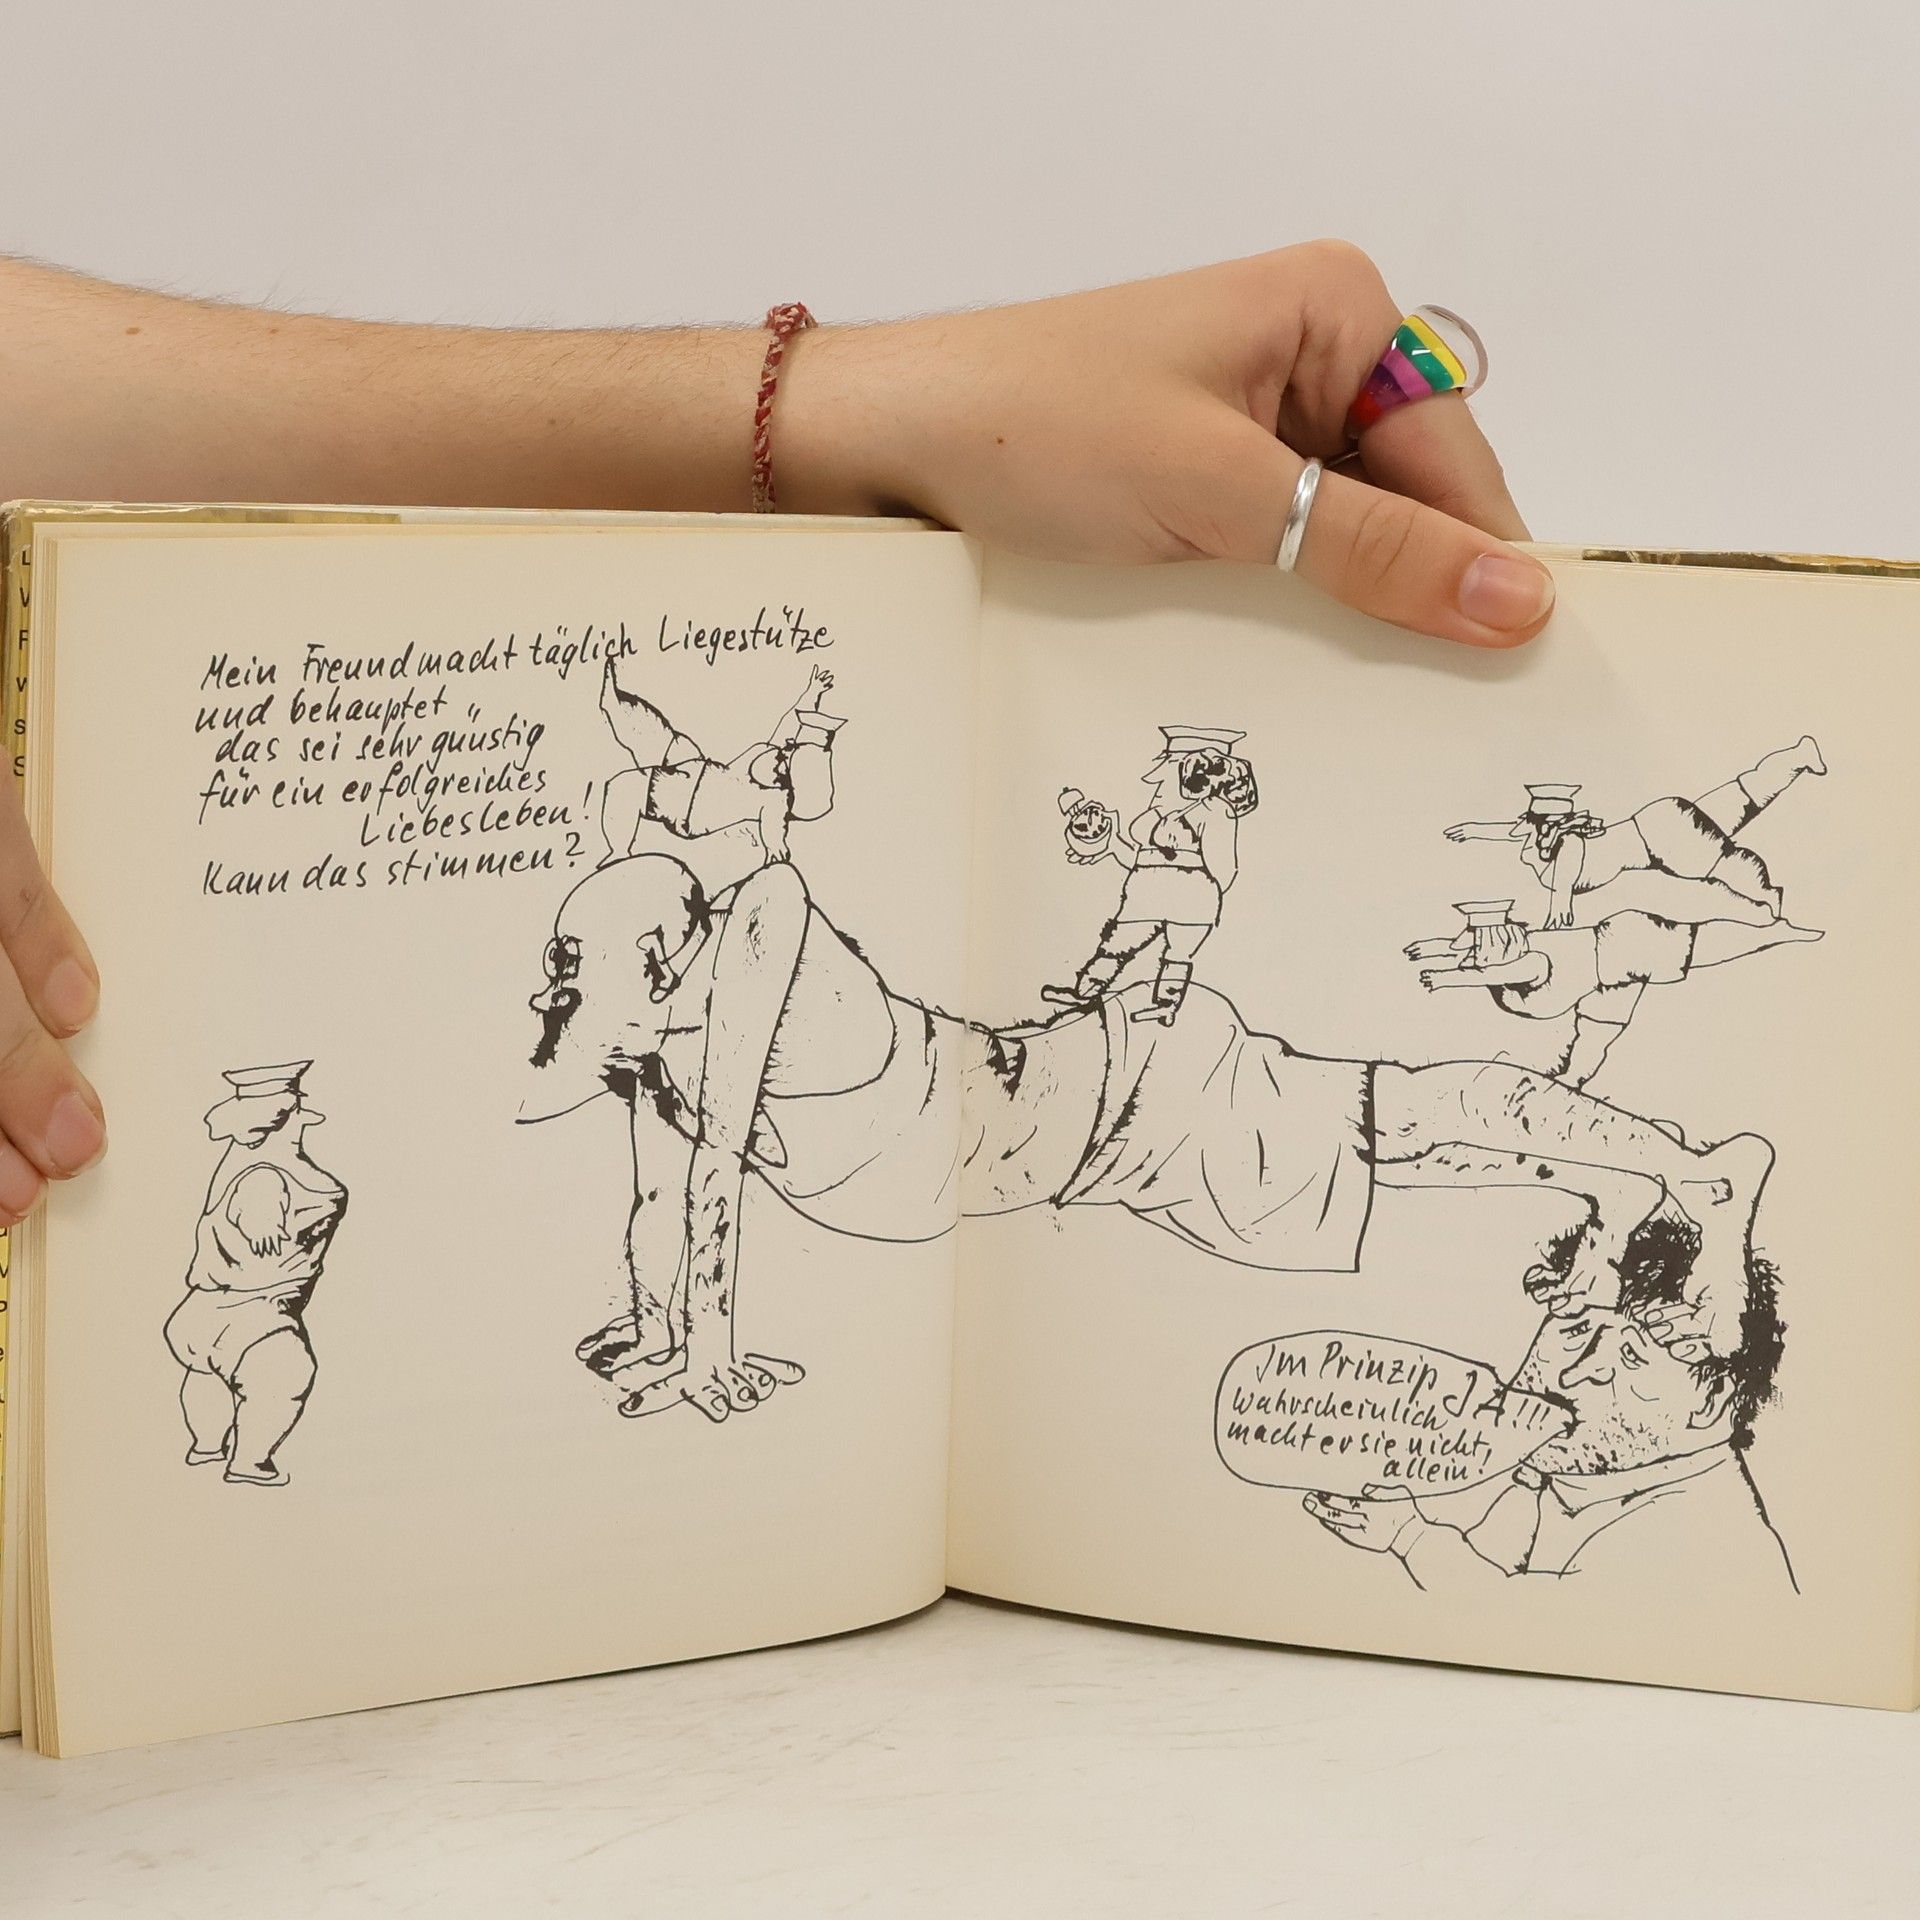 Mein Freund macht täglich Liegestütze
und behauptet
das sei sehr günstig
für ein erfolgreiches
Liebesleben!
Kann das stimmen?
Im Prinzip
JA!!!
Wahrscheinlich
macht er sie nicht
allein!